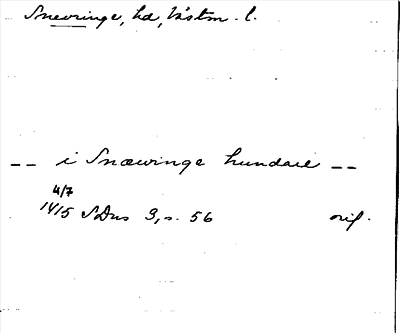 Snevringe, hd, Västm. l.
-- i Snæwinge hundare --
4/7
1415 SDns 3, s. 56 orig.